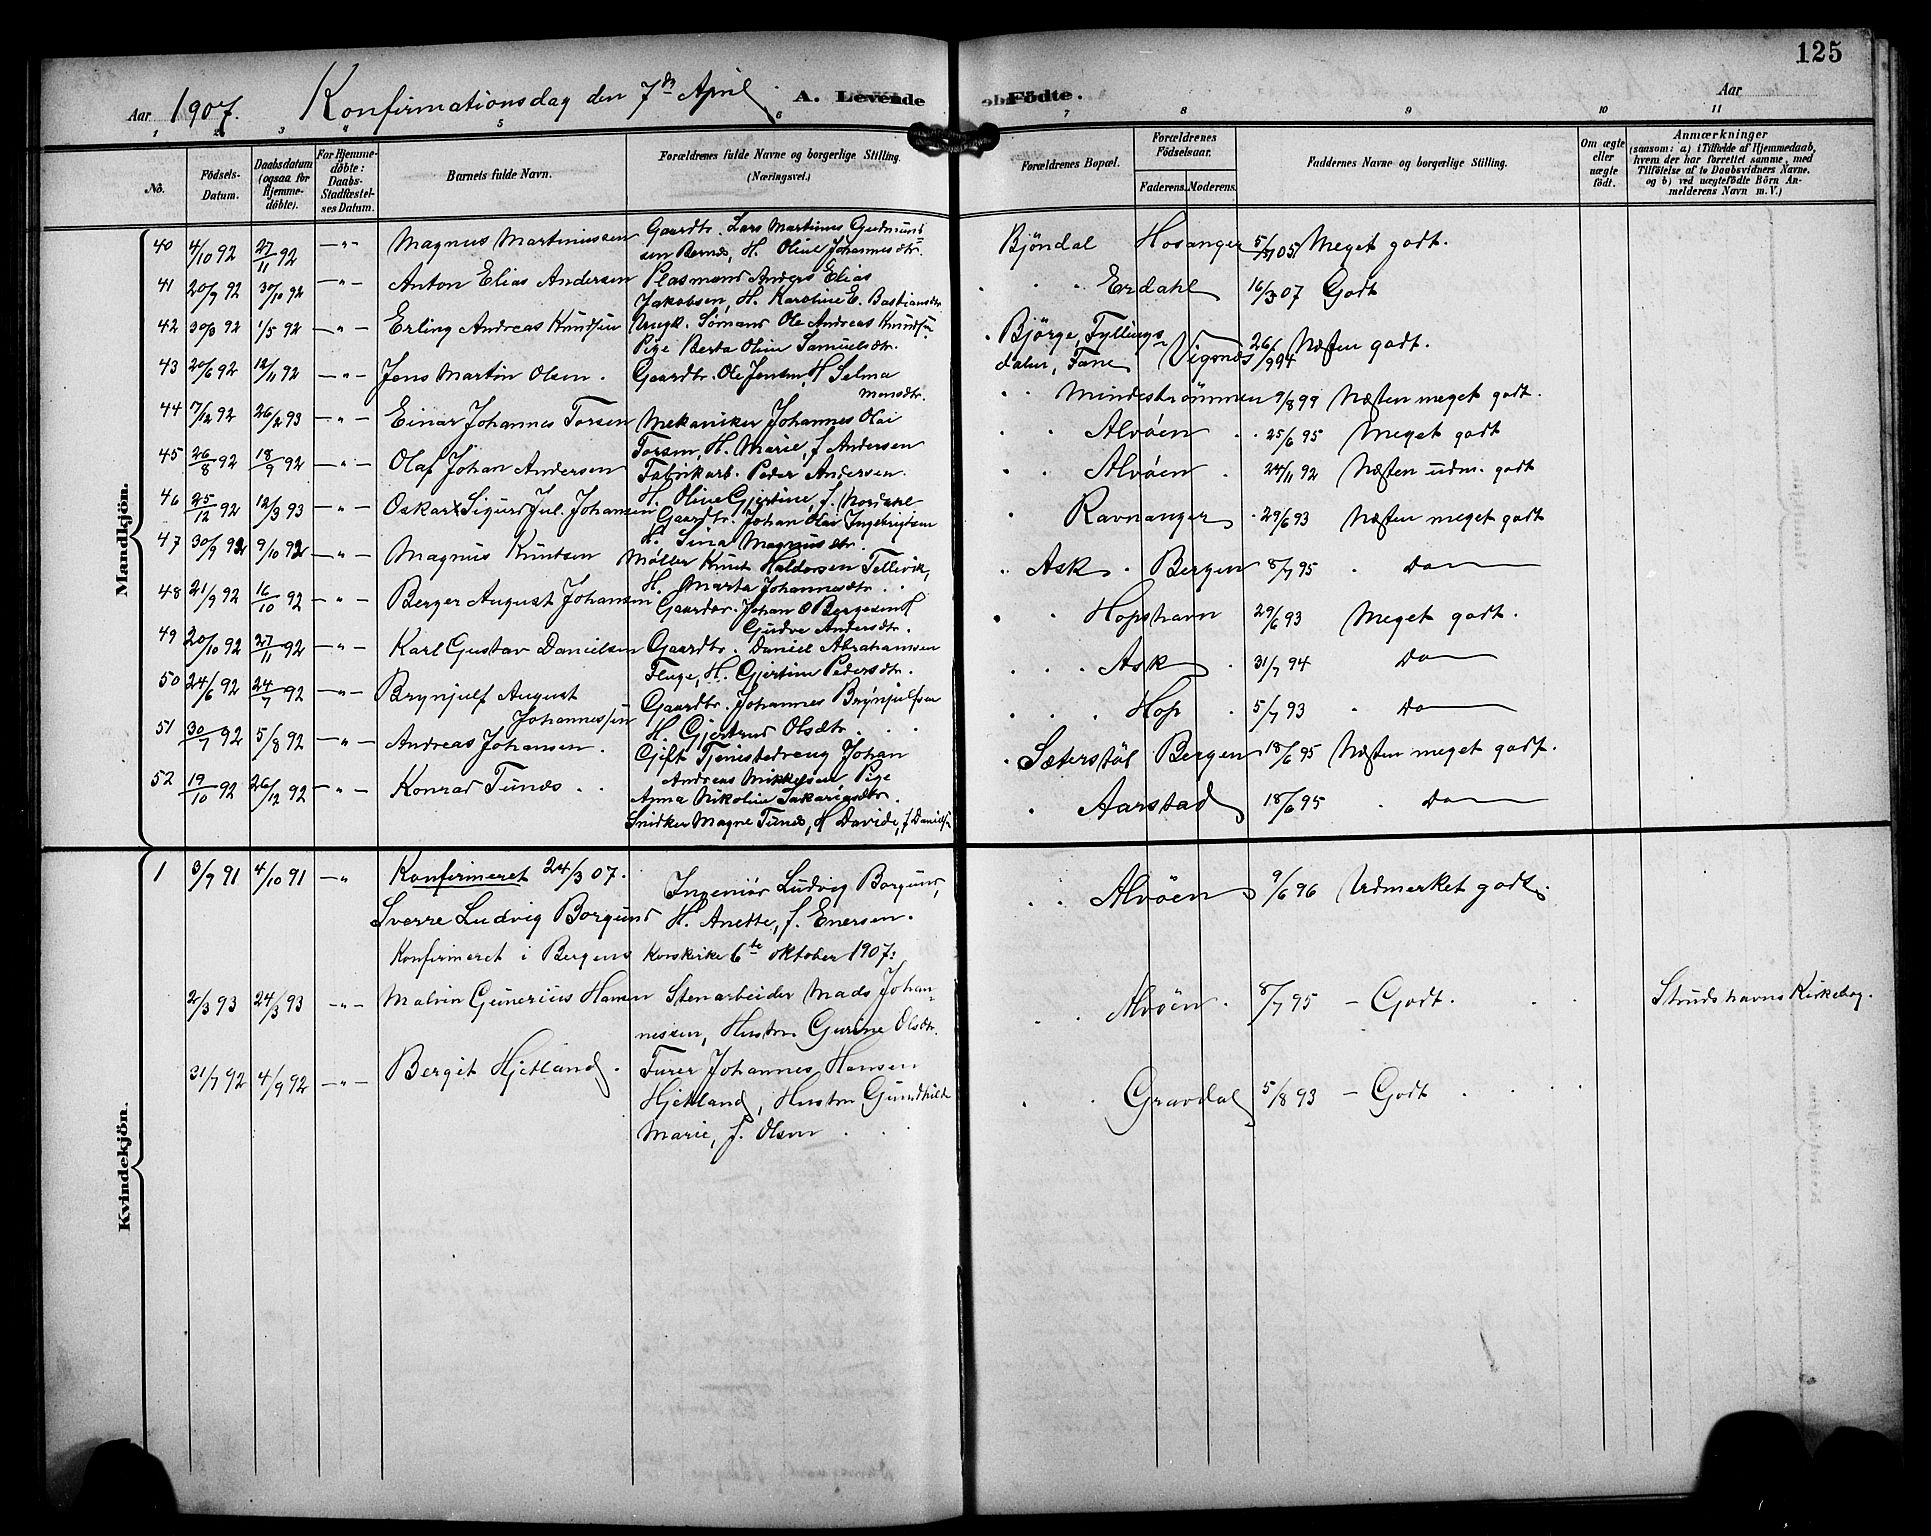 125
Aar 1907. Konfirmationsdag den 7de April. A. Levende Födte. Aar
1 2 3 " 5 6 7 8 9 10 11
No. Födsels-Datum. Daabsdatum (ogsaa for Hjemme-döbte). For Hjemme-döbte: Daabs-Stadfæstel-ses Datum. Barnets fulde Navn. Forældrenes fulde Navne og borgerlige Stilling. (Næringsvei.) Forældrenes Bopæl. Forældrenes Födselsaar. Faderens. Moderens. Faddernes Navne og borgerlige Stilling. Om ægte eller uægte födt. Anmærkninger (saasom: a) i Tilfælde af Hjemmedaab, hvem der har forrettet samme, med Tilföielse af to Daabsvidners Navne, og b) ved uægtefödte Börn An-melderens Navn m. V.)
Mandkjön.
40 4/10 92 27/11 92 -"- Magnus Martinussen Gaardbr. Lars Martinus Gudmund
sen Bernes, H. Oline Johannesdtr. Bjöndal Hosanger 5/7 05 Meget godt.
41 20/9 92 30/10 92 -"- Anton Elias Andersen Plasmand Anders Elias
Jakobsen, H. Karoline E. Bastiansdtr. Erdahl 16/3 07 Godt
42 30/3 92 1/5 92 -"- Erling Andreas Knudsen Ungk. Sömand Ole Andreas Knudsen
Pige Berta Oline Samuelsdtr. Björge, Fyllings-
dalen, Fane Vigsnes 26/9 94 Næsten godt.
43 20/6 92 12/11 92 -"- Jens Martin Olsen. Gaardbr. Ole Jensen, H Selma
Monsdtr. Mindeströmmen 9/8 99 Næsten meget godt.
44 7/12 92 26/2 93 -"- Einar Johannes Torsen Mekaniker Johannes Olai
Torsen, H. Marie, f Andersen Alvöen 25/6 95 Meget godt
45 26/8 92 18/9 92 -"- Olaf Johan Andersen Fabrikarb. Peder Andersen.
H. Oline Gjertine, f. Nordahl Alvöen 24/11 92 Næsten udm. godt
46 25/12 92 12/3 93 -"- Oskar Sigurd Jul. Johansen Gaardbr. Johan Olai Ingebrigtsen
H. Sina Magnusdtr. Ravnanger 29/6 93 Næsten meget godt
47 30/9 92 9/10 92 -"- Magnus Knudsen Møller Knut Haldorsen Tellevik,
H. Marta Johannesdtr. Ask Bergen 8/7 95 Do
48 21/9 92 16/10 92 -"- Berger August Johansen Gaardbr. Johan O Bergesen H
Gudve Andersdtr. Hopshavn 29/6 93 Meget godt.
49 20/10 92 27/11 92 -"- Karl Gustav Danielsen Gaardbr. Daniel Abrahamsen
Fluge, H. Gjertine Pedersdtr. Ask 31/7 94 Do
50 24/6 92 24/7 92 -"- Brynjulf August
Johannessen Gaardbr. Johannes Brynjulfsen
H. Gjertrud Olsdtr. Hop 5/7 93 Do
51 30/7 92 5/8 92 -"- Andreas Johansen. Gift Tjenestedreng Johan
Andreas Mikkelsen Pige
Anna Nikoline Sakariasdtr. Sæterstöl Bergen 18/6 95 Næsten meget godt.
52 19/10 92 26/12 92 -"- Konrad Tunes Snidker Magne Tunes, H Davide, f Danielsen Aarstad 18/6 95 Do
Kvindekjön.
1 3/9 91 4/10 91 -" Konfirmeret 24/3 07.
Sverre Ludvig Borgund Ingeniör Ludvig Borgund,
H. Anette, f. Enersen. Alvöen 9/6 96 Udmerket godt.
Konfirmeret i Bergens Korskirke 6te oktober 1907:
2/3 93 24/3 93 -"- Malvin Gunerius Hansen Stenarbeider Mads Johan-
nessen, Hustru Gurine Olsdtr. Alvöen. 8/7 95 - Godt. Strudshavns Kirkebog.
31/7 92 4/9 92 -"- Bergit Hjetland. Furer Johannes Hansen
Hjetland, Hustru Gundhild
Marie, f. Olsen Gravdal 5/8 93 - Godt